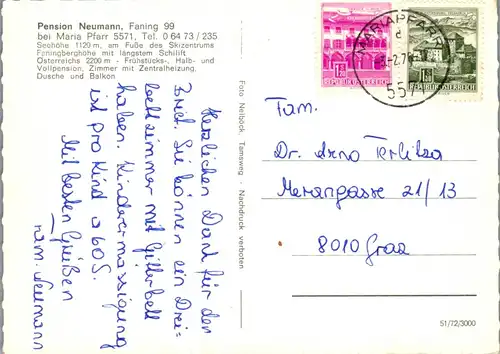 Pension Neumann, Faning 99
bei Maria Pfarr 5571, Tel. 0 64 73 / 235
Seehöhe 1120 m, am Fuße des Skizentrums
Faningberghöhe mit längstem Schilift
Österreichs 2200 m - Frühstücks-, Halb- und
Vollpension, Zimmer mit Zentralheizung,
Dusche und Balkon
Herzlichen Dank für den
Brief. Sie können ein Drei-
bettzimmer mit Gitterbett
haben. Kinderermässigung
ist pro Kind a 60 S.
Mit besten Grüßen
Fam. Neumann
Foto Nelböck, Tamsweg - Nachdruck verboten
REPUBLIK ÖSTERREICH
REPUBLIK ÖSTERREICH
MARIAPFARR
5571
Fam.
Dr. Arno Terlitza
Merangasse 21/13
8010 Graz
51/72/3000